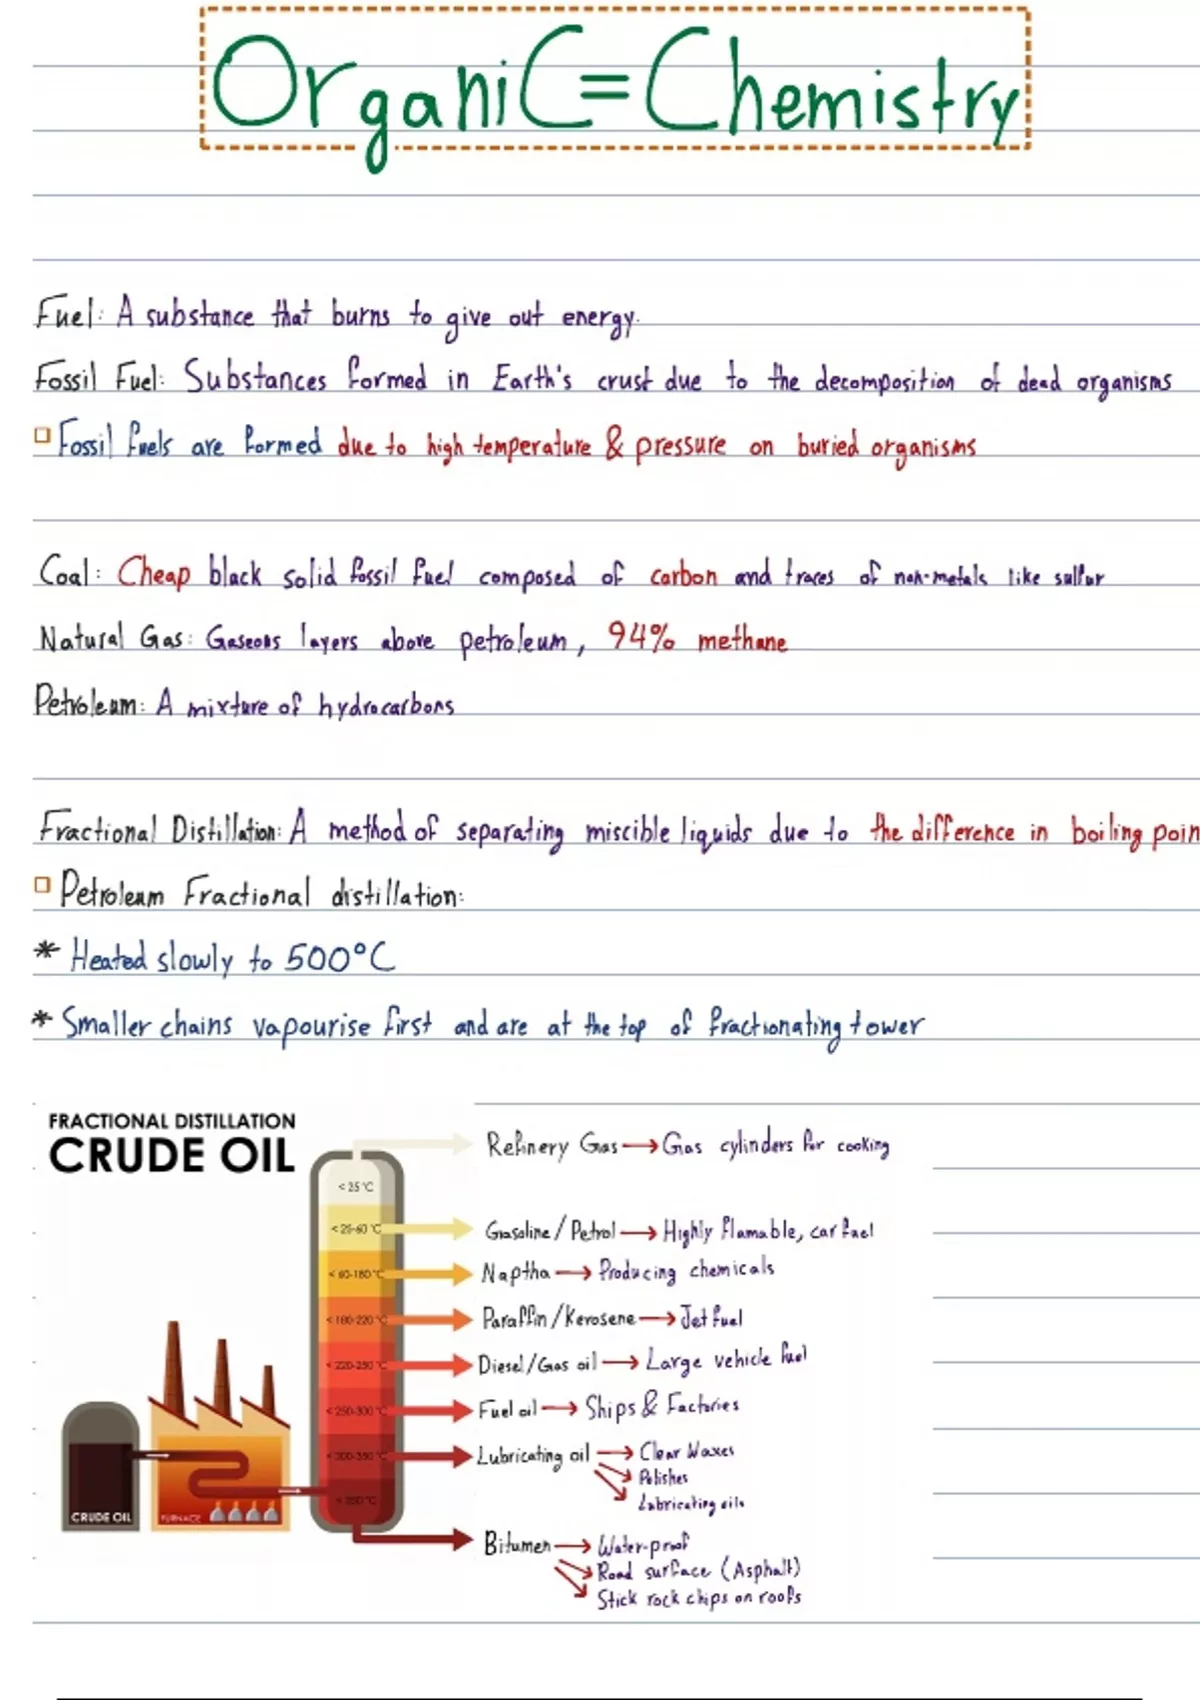 OrganiC=Chemistry
Fuel: A substance that burns to give out energy.
Fossil Fuel: Substances formed in Earth's crust due to the decomposition of dead organisms
Fossil fuels are formed due to high temperature & pressure on buried organisms
Coal: Cheap black solid fossil fuel composed of carbon and traces of non-metals like sulfur
Natural Gas: Gaseous layers above petroleum, 94% methane
Petroleum: A mixture of hydrocarbons
Fractional Distillation: A method of separating miscible liquids due to the difference in boiling poin
Petroleum Fractional distillation:
* Heated slowly to 500°C
* Smaller chains vapourise first and are at the top of fractionating tower
FRACTIONAL DISTILLATION
CRUDE OIL
Refinery Gas → Gas cylinders for cooking
< 25 °C
< 25-60 °C Gasoline / Petrol → Highly flamable, car fuel
< 60-180 °C Naptha → Producing chemicals
< 180-220 °C Paraffin / Kerosene → Jet fuel
< 220-250 °C Diesel / Gas oil → Large vehicle fuel
< 250-300 °C Fuel oil → Ships & Factories
< 300-350 °C Lubricating oil → Clear Waxes
Polishes
< 350 °C Lubricating oils
CRUDE OIL FURNACE
Bitumen → Water-proof
Road surface (Asphalt)
Stick rock chips on roofs